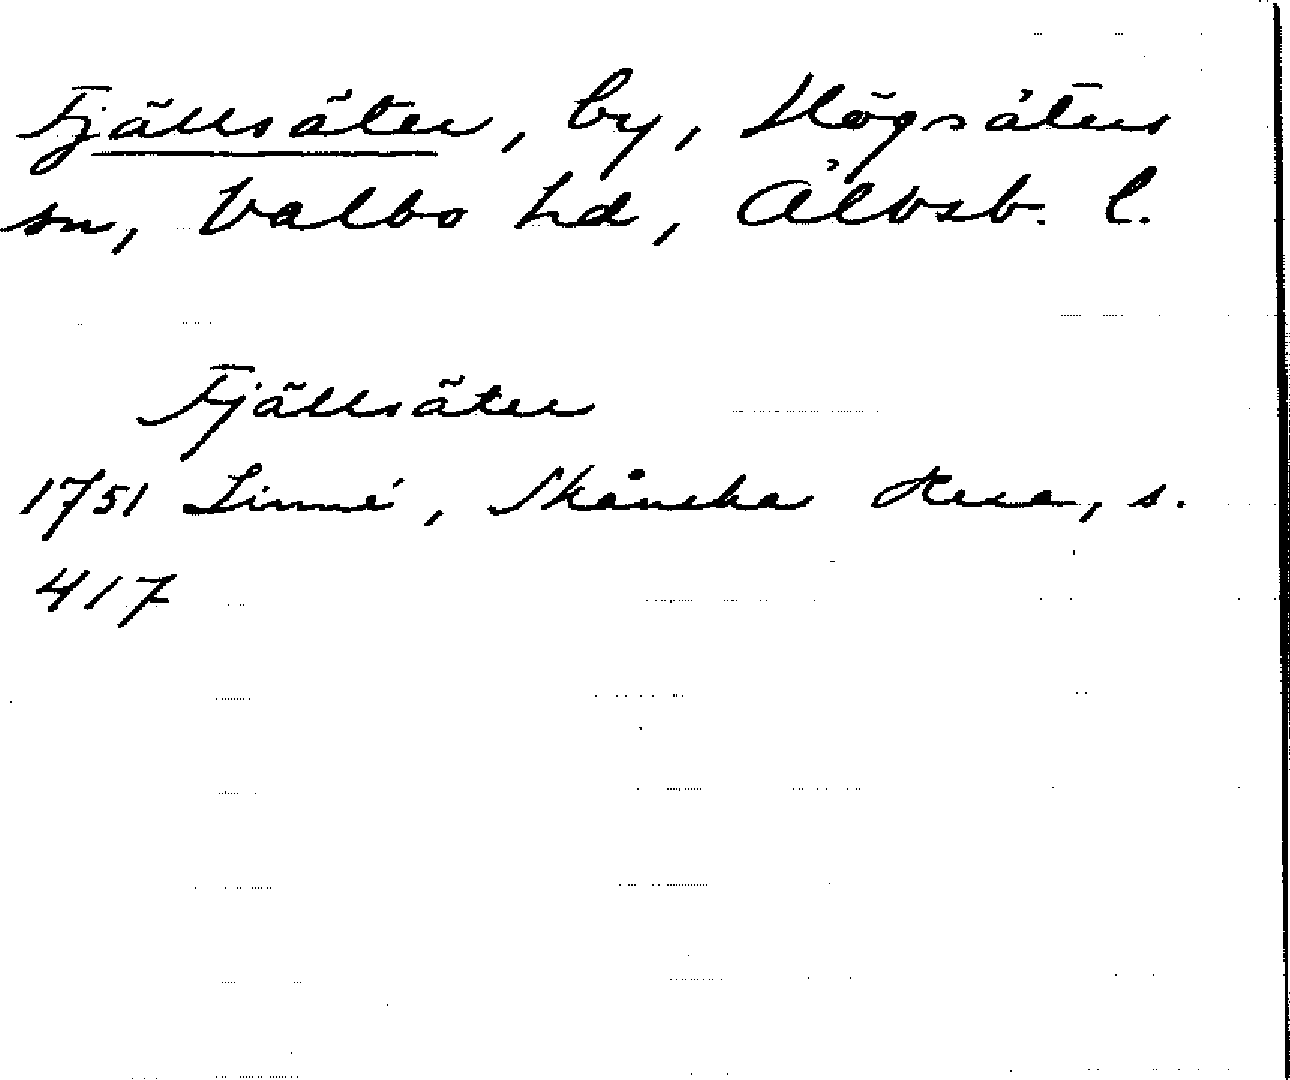 Fjällsäter, by, Högsäters
sn, Valbo hd, Älvsb. l.
Fjällsäter
1751 Linné, Skånska Resa, s.
417